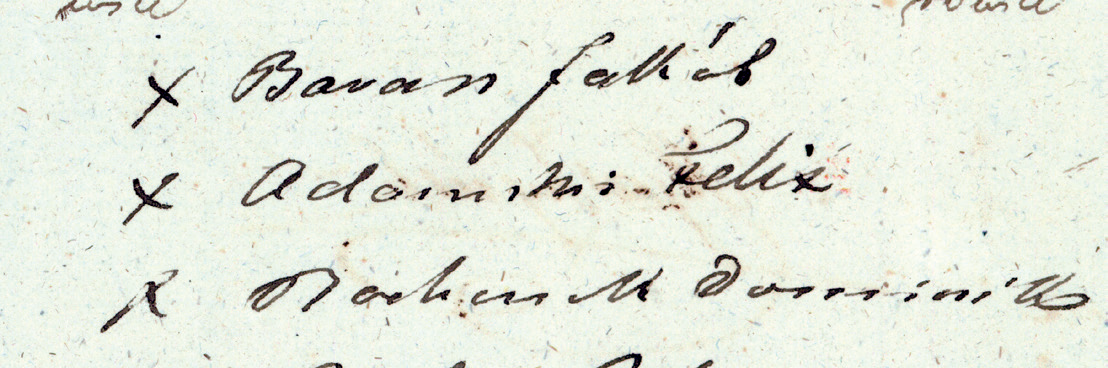 x Baran Jakób
x Adamski Felix
x Dominik